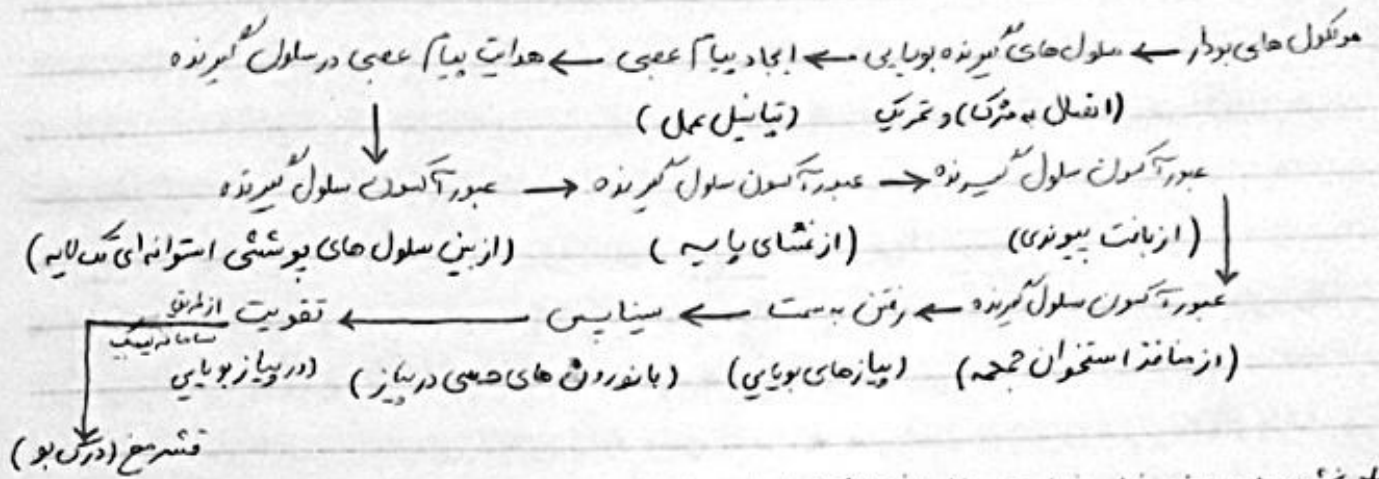 مولکول های بودار ← سلول های گیرنده بویایی ← ایجاد پیام عصبی ← هدایت پیام عصبی در سلول گیرنده
(اتصال به مژک) و تحریک (پتانسیل عمل) ↓
عبور آکسون سلول گیرنده → عبور آکسون سلول گیرنده → عبور آکسون سلول گیرنده
(از بین سلول های پوششی استوانه ای تک لایه) (از غشای پایه) (از بافت پیوندی) ↓
عبور آکسون سلول گیرنده ← رفتن به سمت ← سیناپس ← تقویت از طریق
(از منافذ استخوان جمجمه) (پیازهای بویایی) (با نورون های حسی در پیاز) (در پیاز بویایی)
قشر مخ (درک بو)